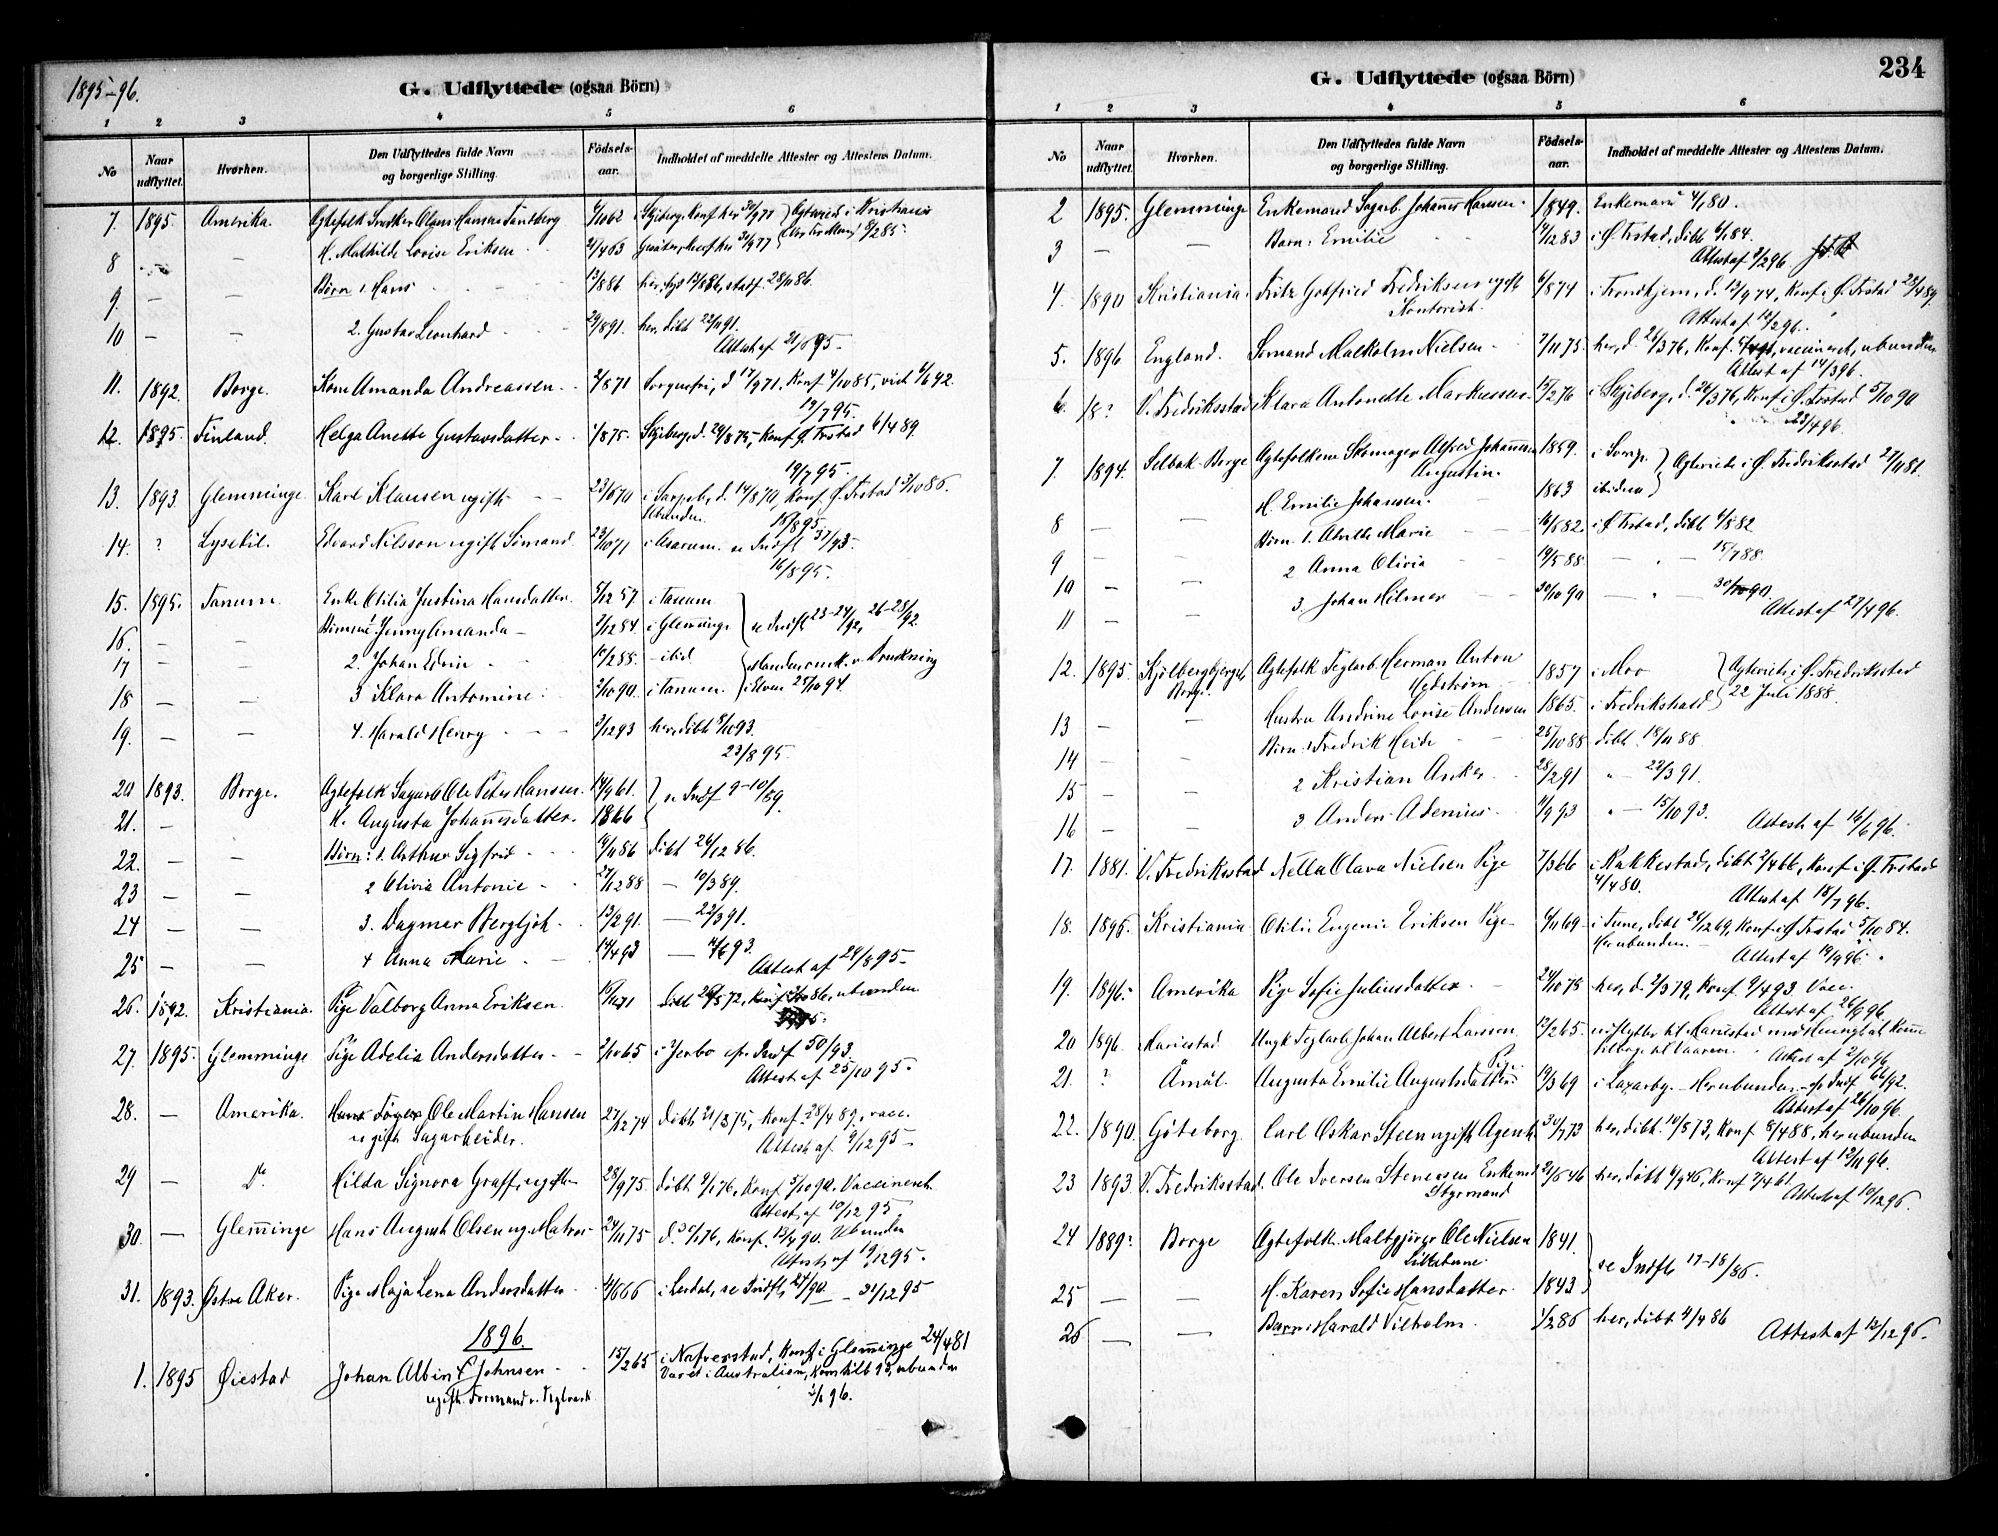 1895-96.
G. Udflyttede (ogsaa Börn)
1 2 3 4 5 6
No Naar udflyttet. Hvorhen. Den Udflyttedes fulde Navn og borgerlige Stilling. Födsels-aar. Indholdet af meddelte Attester og Attestens Datum.
7. 1895. Amerika. Ægtefolk Snedker Olaus Hansen
8 H. Mathilde Lovise Eriksen 21/4 63
9. — — Börn 1 Hans 13/8 86
10 — — 2. Gustav Leonhard 29/8 91. her, döbt 22/11 91.
Attest af 21/6 95
11. 1892. Borge. Kone Amanda Andreassen 2/8 71 Konf 4/10 85, viet 6/6 92.
19/7 95.
12. 1895. Finland. Helga Anette Gustavsdatter 1/8 75. Skjeberg, d. 29/8 75, Konf Ø. Frstad 6/4 89.
19/7 95.
13. 1893 Glemminge Karl Klausen ugift 23/6 70 i Sarpsb, d. 14/8 70, Konf. Ø. Frstad 3/10 86.
Ubunden. 15/8 95
14. ? Lysekil. Edvard Nilsson ugift Sömand 23/10 71 i Asarum. se Indfl 37/93.
16/8 95.
15. 1895. Tanum. Enke Otilia Justina Hansdatter. 5/12 57 i Tanum
16. — — Jenny Amanda 2/12 84 i Glemminge se Indfl 23-24/92, 26-28/92.
17 — — 2. Johan Edvin 10/2 88. — ibid
18 — — 3 Klara Antonine 2/10 90. i Tanum. i Elven 25/10 94.
19. — — 4. Harald Henry 2/12 93 her, döbt 8/10 93.
23/8 95.
20 1893. Borge. Ægtefolk Sagarb Ole Peter Hansen 14/9 61. se Indf 9-10/89.
21. — — H. Augusta Johannesdatter. 1866
22. — — Börn: 1. Arthur Sigfrid 19/11 86 döbt 26/12 86.
23 — — 2 Olivia Antonie 27/12 88 — 10/3 89.
24 — — 3. Dagmar Bergljot 13/2 91. — 22/3 91.
25 — — 4 Anna Marie 14/4 93 — 4/6 93.
Attest af 24/8 95
26. 1892. Kristiania. Pige Valborg Anna Eriksen 19/11 71 döbt 20/5 72, Konf 3/10 86, ubunden
27. 1895. Glemminge Pige Adelia Andersdatter 2/10 65 i Jerbo cfr. Indf 50/93.
Attest af 25/10 95.
28. — Amerika. Ole Martin Hansen 27/12 74 döbt 21/3 75, Konf. 28/4 89, vacc.
ugift Sagarbeider. Attest af 9/12 95
29 — Do. Hilda Signora Graff, ugift 28/9 75 döbt 9/1 76, Konf 5/10 90. Vaccineret.
Attest af 10/12 95
30. — Glemminge Hans August Olsen ug. Matros 24/11 75 Konf. 13/4 90. Ubunden
Attest af 19/12 95.
31. 1893. Østre Aker. Pige Maja Lena Andersdatter 4/6 66 i Lerdal, se Indfl, 27/90. — 21/12 95
1896.
1. 1895 Øiestad Johan Albin Johnsen 15/2 65 i Nafverstad, Konf i Glemminge 24/4 81
ugift. Formand v. Teglværk Været i Australien, Kom hit 93, ubunden
3/1 96.
234
G. Udflyttede (ogsaa Börn)
1 2 3 4 5 6
No Naar udflyttet. Hvorhen. Den Udflyttedes fulde Navn og borgerlige Stilling. Födsels-aar. Indholdet af meddelte Attester og Attestens Datum.
2 1895. Glemminge Enkemand Sagarb. Johannes Hansen 1849. Enkemand 4/1 80.
3 — — Barn: Emilie 19/12 83 i Ø. Frstad, döbt 6/1 84.
Attest af 9/2 96.
4. 1890 Kristiania. Fritz Gotfried Fredriksen ugift 6/8 74 i Trondhjem, d. 13/9 74, Konf. i Ø. Frstad 28/4 89.
Kontorist. Attest af 12/2 96.
5. 1896 England. Sömand Malkolm Nielsen 7/11 75. her, d. 26/3 76, Konf. vaccineret, ubunden
Attest af 14/3 96.
6. 18 ? V. Fredriksstad Klara Antonette Markussen 14/2 76 i Skjeberg, d. 26/3 76, Konf i Ø. Frstad 5/10 90
23/4 96.
7. 1894. Selbak Borge Ægtefolkene Skomager Alfred Johannes 1859. Ægteviet i Ø. Fredriksstad 27/11 81.
Augustin. ibidem
8 — — H. Emilie Johansen. 1863
9 — — Börn. 1. Alvilde Marie 16/5 82. i Ø. Frstad, döbt 4/8 82
10 — — 2 Anna Olivia 19/5 88. — " — 15/7 88.
11 — — 3. Johan Hilmer 30/10 90 — " — 30/10 90.
Attest af 27/4 96.
12. 1895. Kjölbergbjerget Ægtefolk Teglarb. Herman Anton 1857 i Mo Ægteviet i Ø. Fredriksstad
Borge. Hedström 22 Juli 1888.
13 — — Hustru Andrine Lovise Andersen 1865. i Fredrikshald
14 — — Börn: 1 Fredrik Heide 25/10 88 döbt 18/11 88.
15 — — 2 Kristian Anker 28/2 91 " — 22/3 91.
16 — — 3 Anders Adenius 3/9 93 " — 15/10 93.
Attest af 16/6 96.
17. 1881. V. Fredriksstad Nella Olava Nielsen Pige 7/3 66 i Rakkestad, döbt 2/4 66, Konf i Ø. Frstad
4/4 80. Attest af 18/7 96.
18. 1895. Kristiania Otilie Eugenie Eriksen Pige 6/11 69 i Tune, döbt 26/12 69, Konf i Ø. Frstad 5/10 84.
Her ubunden. — Attest af 19/9 96.
19. 1896. Amerika Pige Sofie Juliusdatter 24/10 78 her, d. 2/3 79, Konf. 9/4 93. Vacc.
Attest af 26/9 96.
20 1896. Mariestad Ungk Teglarb Johan Albert Larsson 12/2 65. udflytter til Mariestad
Attest af 2/10 96.
21. ? Åmål. Augusta Emilie Augustsdatter Pige 19/3 69 Her ubunden. cfr Indf 66/92.
Attest af 26/10 96.
22. 1890. Göteborg. Carl Oskar Steen ugift Agent 30/7 73 her, döbt. 10/8 73, Konf 8/4 88, her ubunden
Attest af 12/11 96.
23 1893. V. Fredriksstad. Ole Iversen Stenersen Enkemd 21/6 46 her, döbt 4/9 46, Konf 7/4 61
Styrmand Attest af 10/12 96.
24 1889. Borge Ægtefolk. Maltgjörer Ole Nielsen 1841. se Indfl 17-18/86.
25 — — H. Karen Sofie Hansdatter. 1843
26 — — Barn: Harald Vilhelm 1/2 86 her, döbt 4/4 86
Attest af 12/12 96.